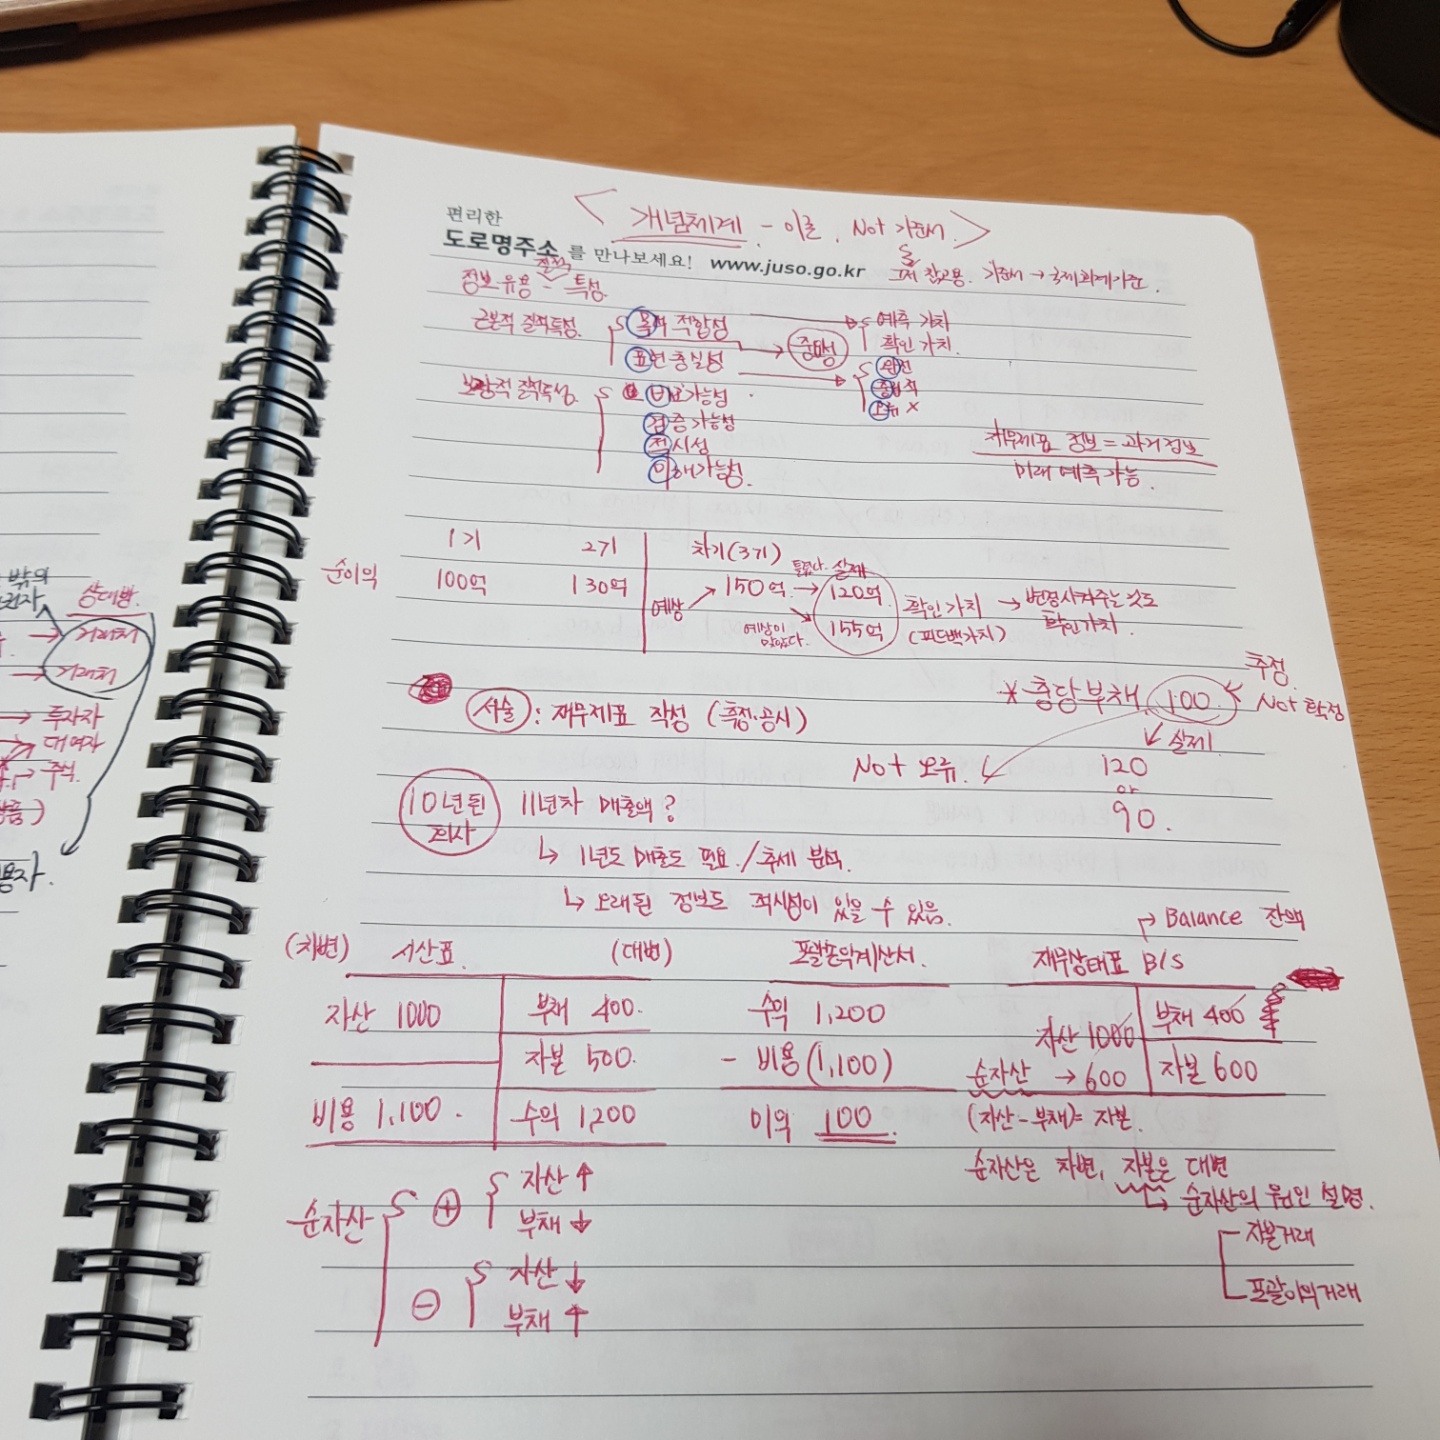 편리한
도로명주소 를 만나보세요! www.juso.go.kr
< 개념체계 - 이론. Not 기준서. >
그저 참고용. 기준서 → 국제회계기준.
정보 유용 - 질적 특성.
근본적 질적특성. 목적 적합성 → 예측 가치
확인 가치.
표현 충실성 → 중요성
완전
중립적
오류 X
보강적 질적특성. 비교가능성
검증가능성
적시성
이해가능성.
재무제표 정보 = 과거정보
미래 예측 가능.
1기 2기 차기(3기)
순이익 100억 130억 예상 → 150억 → 120억
틀렸다. 실제
예상이 맞았다. 155억
확인가치 → 변경시켜주는것도
(피드백가치) 확인가치.
서술 : 재무제표 작성 (측정·공시)
* 충당부채 100. ← 추정.
Not 확정
↙ 실제
Not 오류. 120
or
90.
10년된 회사 11년차 매출액?
↳ 1년도 매출도 필요. / 추세 분석.
↳ 오래된 정보도 적시성이 있을 수 있음.
(차변) 시산표. (대변)
자산 1000 부채 400.
자본 500.
비용 1,100. 수익 1,200
포괄손익계산서.
수익 1,200
- 비용 (1,100)
이익 100
Balance 잔액
재무상태표 B/S
자산 1000 부채 400
순자산 → 600 자본 600
(자산-부채)= 자본.
순자산은 차변, 자본은 대변
↳ 순자산의 원인 설명.
자본거래
포괄이익거래
순자산 ⊕ 자산 ↑
부채 ↓
⊖ 자산 ↓
부채 ↑
밖의
상대방.
→ 거래처
→ 거래처
→ 투자자
→ 대여자
→ 주식.
용자.